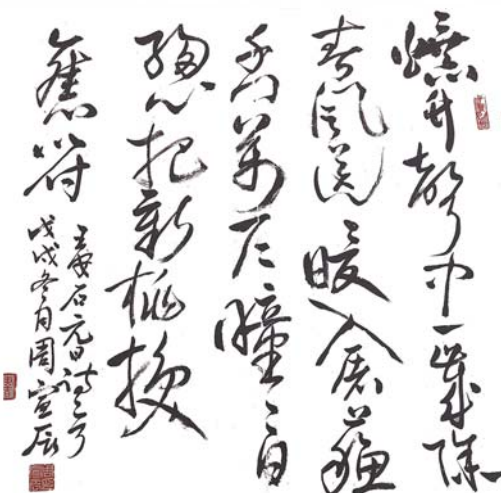 爆竹聲中一歲除
春風送暖入屠蘇
千门萬戶曈々日
總把新桃換
舊符
王安石元日诗
戊戌冬月周宣辰